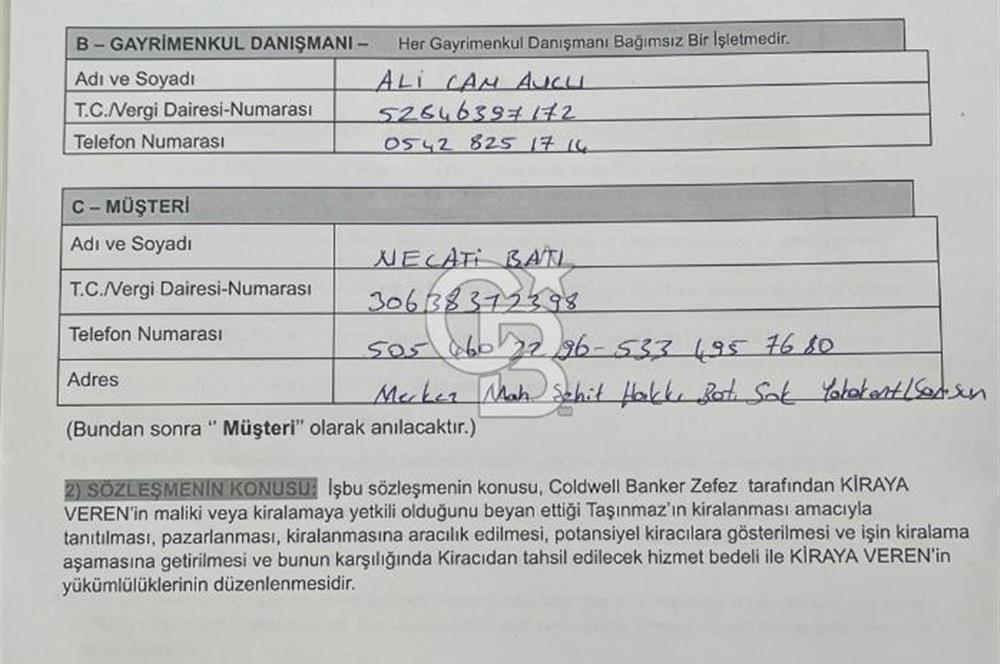 B – GAYRİMENKUL DANIŞMANI – Her Gayrimenkul Danışmanı Bağımsız Bir İşletmedir.
Adı ve Soyadı ALİ CAN AVCU
T.C./Vergi Dairesi-Numarası 52646397172
Telefon Numarası 0542 825 17 14
C – MÜŞTERİ
Adı ve Soyadı NECATİ BATI
T.C./Vergi Dairesi-Numarası 30638372398
Telefon Numarası 505 460 22 96 - 533 495 76 80
Adres Merkez Mah Şehit Hakkı Batı Sok
(Bundan sonra “ Müşteri” olarak anılacaktır.)
2) SÖZLEŞMENİN KONUSU: İşbu sözleşmenin konusu, Coldwell Banker Zefez tarafından KİRAYA
VEREN’in maliki veya kiralamaya yetkili olduğunu beyan ettiği Taşınmaz’ın kiralanması amacıyla
tanıtılması, pazarlanması, kiralanmasına aracılık edilmesi, potansiyel kiracılara gösterilmesi ve işin kiralama
aşamasına getirilmesi ve bunun karşılığında Kiracıdan tahsil edilecek hizmet bedeli ile KİRAYA VEREN’in
yükümlülüklerinin düzenlenmesidir.